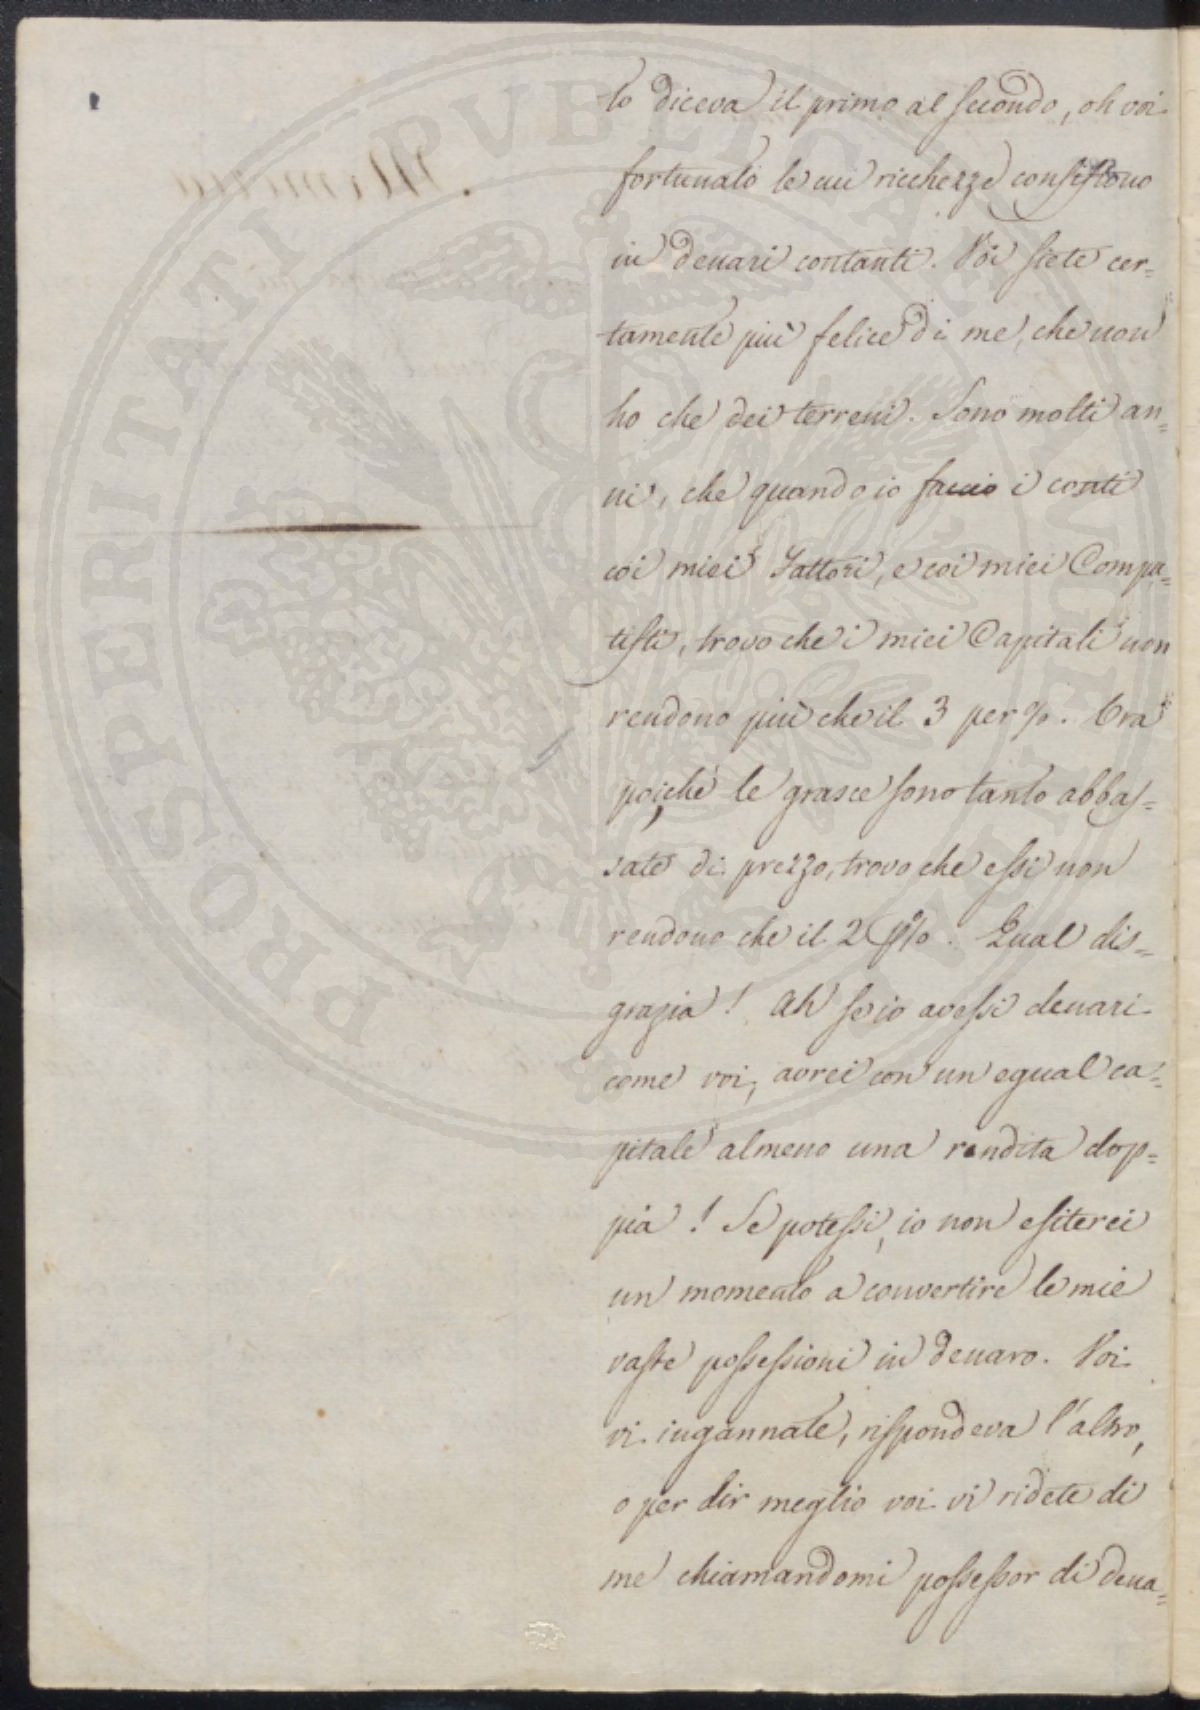 to diceva il primo al secondo, oh voi
fortunato le cui ricchezze consistono
in denari contanti. Voi siete cer=
tamente più felice di me, che non
ho che dei terreni. Sono molti an=
ni, che quando io faccio i conti
coi miei Fattori, e coi miei Compu=
tisti, trovo che i miei Capitali non
rendono più che il 3 per %. Ora
poiché le grasce sono tanto abbas=
sate di prezzo, trovo che essi non
rendono che il 2 p%. Qual dis=
grazia! Ah se io avessi denari
come voi, avrei con un egual ca=
pitale almeno una rendita dop=
pia! Se potessi, io non esiterei
un momento a convertire le mie
vaste possessioni in denaro. Voi
vi ingannate, rispondeva l'altro,
o per dir meglio voi vi ridete di
me chiamandomi possessor di dena=
PROSPERITATI PVBLICAE AVGENDAE